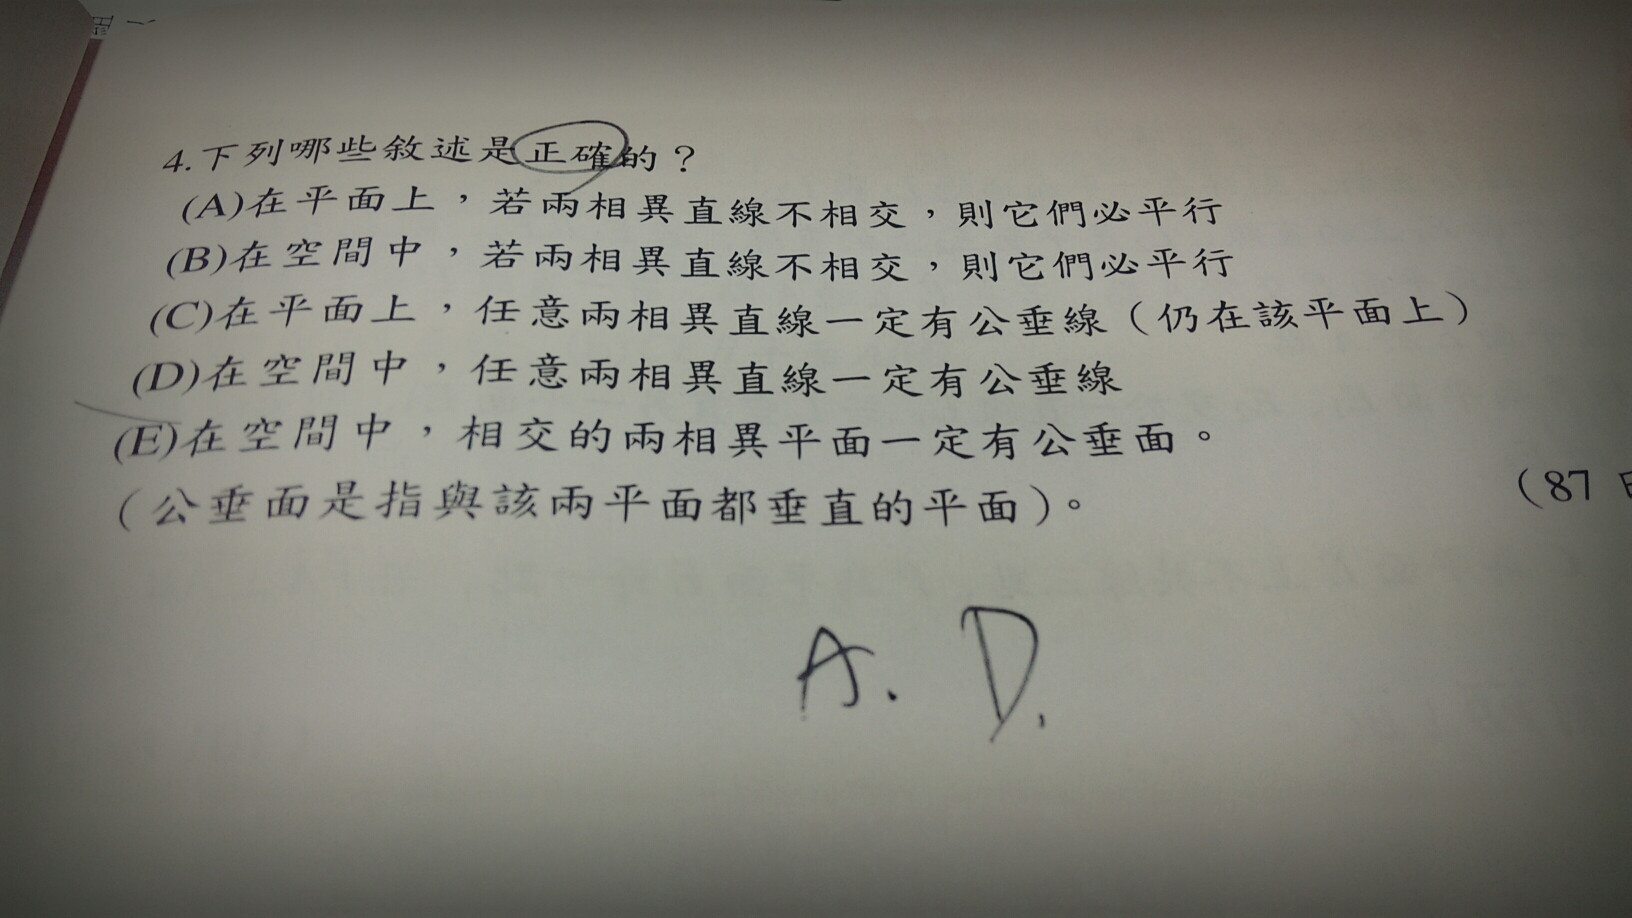 4.下列哪些敘述是正確的？
(A)在平面上，若兩相異直線不相交，則它們必平行
(B)在空間中，若兩相異直線不相交，則它們必平行
(C)在平面上，任意兩相異直線一定有公垂線（仍在該平面上）
(D)在空間中，任意兩相異直線一定有公垂線
(E)在空間中，相交的兩相異平面一定有公垂面。
（公垂面是指與該兩平面都垂直的平面）。
（87
A. D.